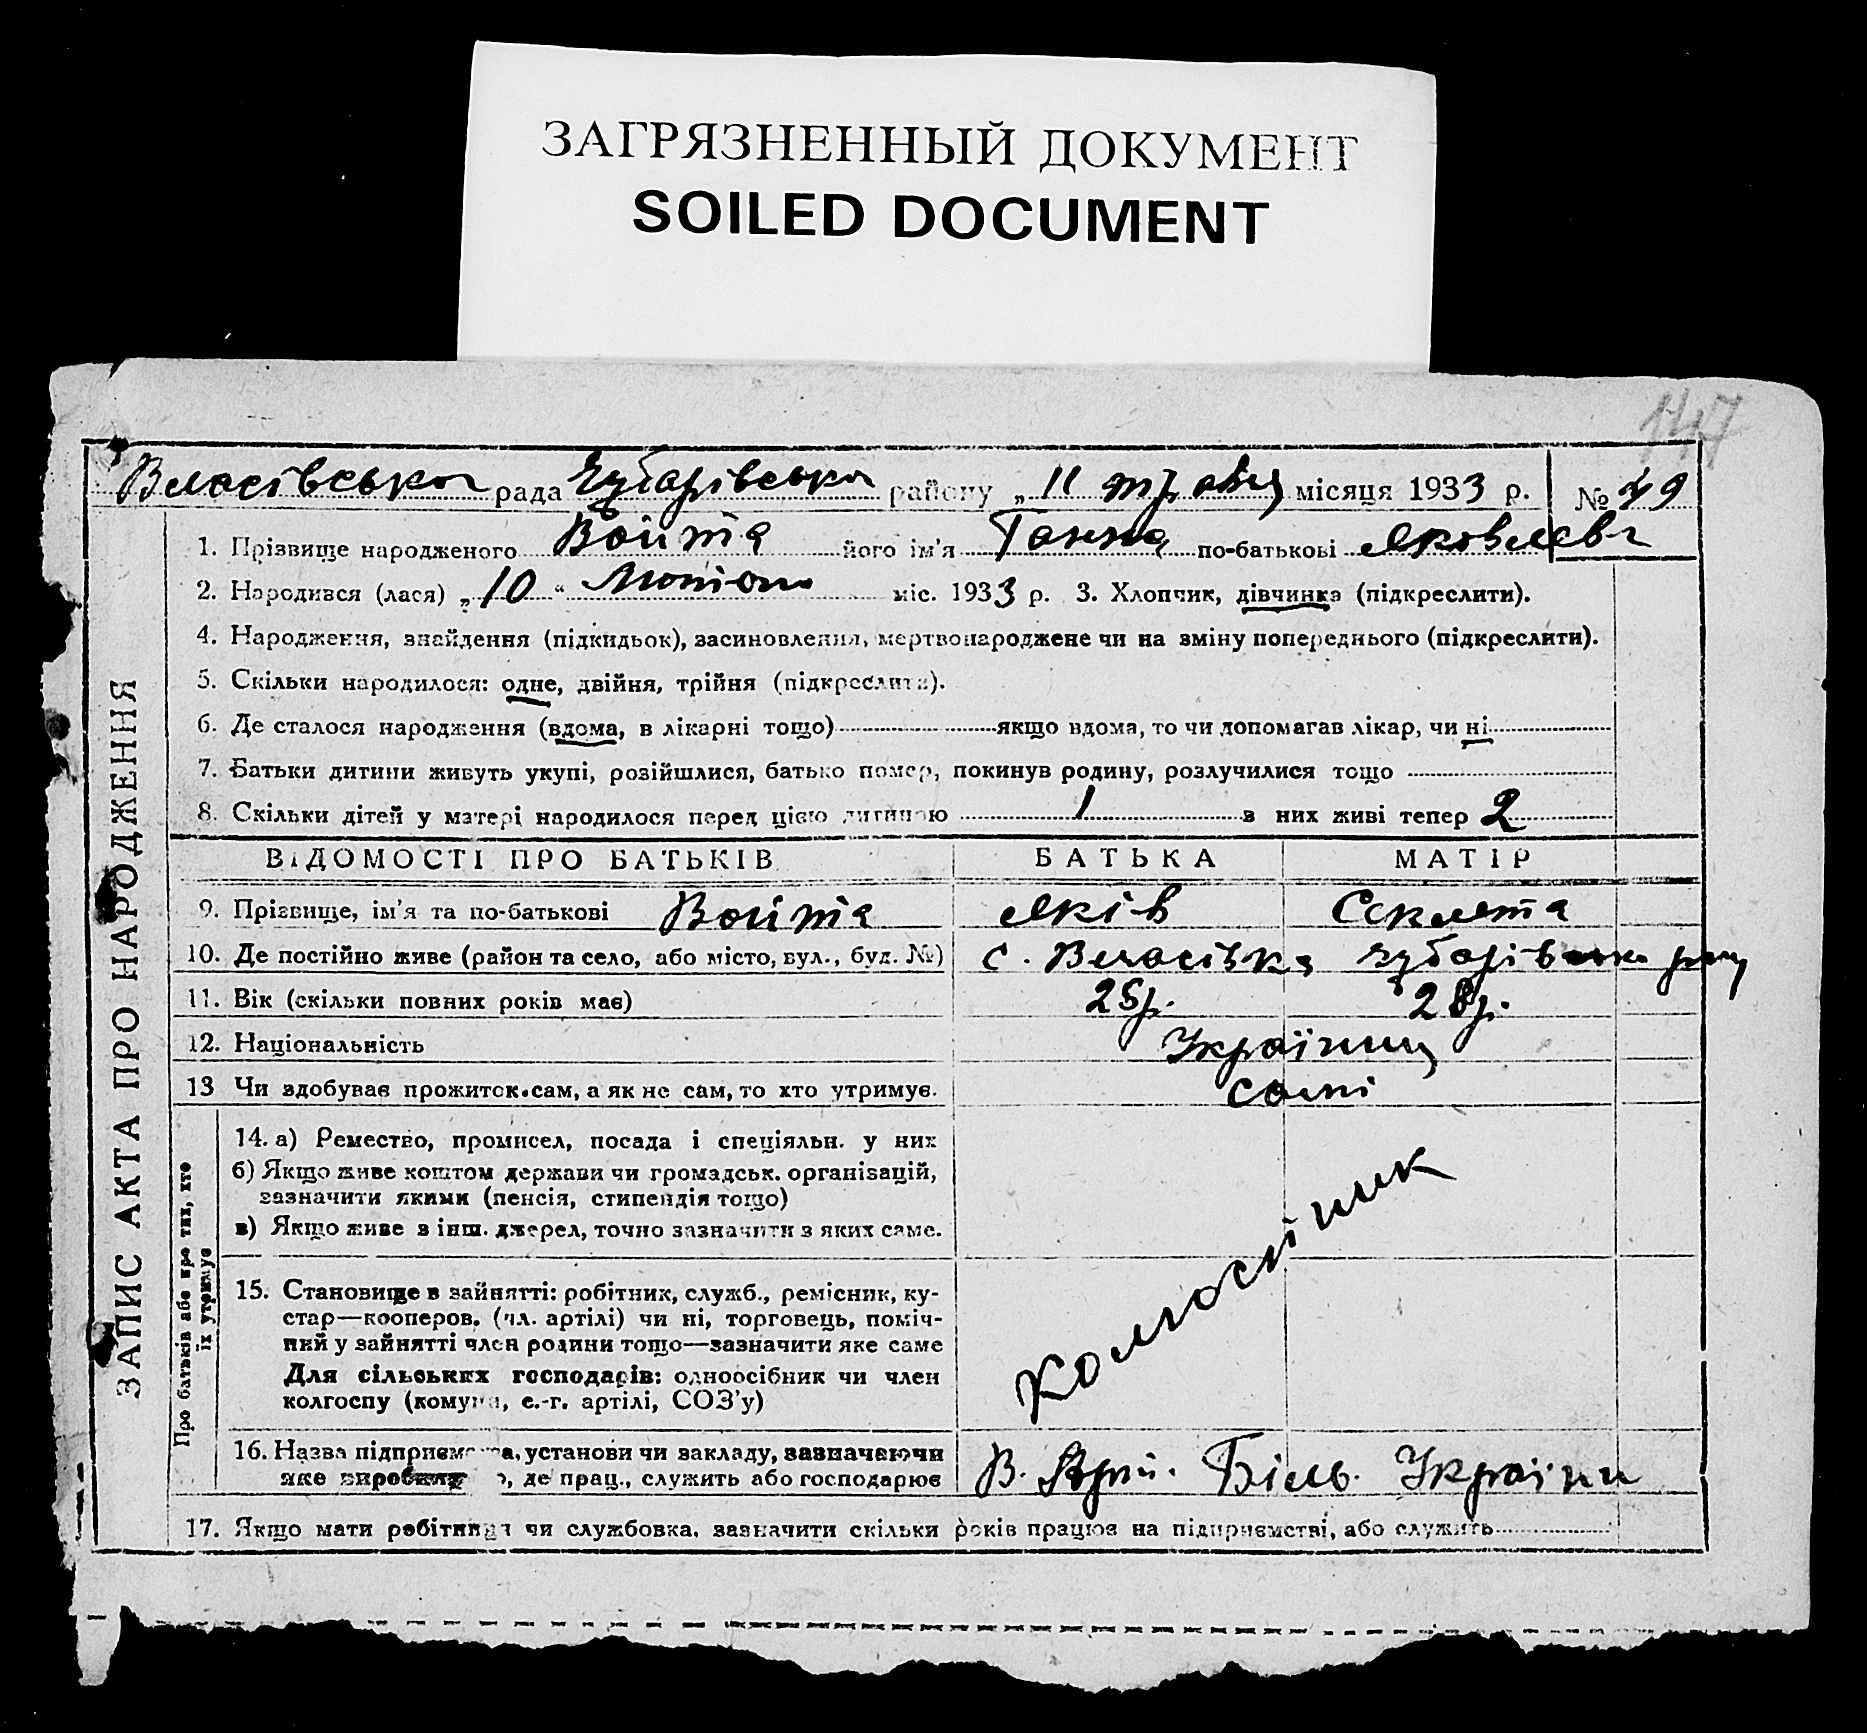 ЗАГРЯЗНЕННЫЙ ДОКУМЕНТ
SOILED DOCUMENT
147
Власівська рада Чубарівська району „ 11 травня місяця 1933 р. № 49
1. Прізвище народженого Войта його ім'я Ганна по-батькові Яковлевн
2. Народився (лася) „ 10 “ Лютого міс. 1933 р. 3. Хлопчик, дівчинка (підкреслити).
4. Народження, знайдення (підкидьок), засиновлення, мертвонароджене чи на зміну попереднього (підкреслити).
5. Скільки народилося: одне, двійня, трійня (підкреслити).
6. Де сталося народження (вдома, в лікарні тощо) якщо вдома, то чи допомагав лікар, чи ні
7. Батьки дитини живуть укупі, розійшлися, батько помер, покинув родину, розлучилися тощо
8. Скільки дітей у матері народилося перед цією дитиною 1 з них живі тепер 2
ВІДОМОСТІ ПРО БАТЬКІВ БАТЬКА МАТІР
9. Прізвище, ім'я та по-батькові Войта Яків Секлета
10. Де постійно живе (район та село, або місто, вул., буд. №) с. Власівка Чубарівська рану
11. Вік (скільки повних років має) 25р. 28р.
12. Національність Українці
13 Чи здобуває прожиток сам, а як не сам, то хто утримує. самі
14. а) Ремество, промисел, посада і спеціяльн. у них
б) Якщо живе коштом держави чи громадськ. організацій,
зазначити якими (пенсія, стипендія тощо)
в) Якщо живе з інш. джерел, точно зазначити з яких саме.
15. Становище в зайнятті: робітник, служб., ремісник, ку-
стар—кооперов. (чл. артілі) чи ні, торговець, поміч-
ний у зайнятті член родини тощо—зазначити яке саме
Для сільських господарів: одноосібник чи член
колгоспу (комуни, с.-г. артілі, СОЗ'у)
колгоспник
16. Назва підприємства, установи чи закладу, зазначаючи
яке виробництво, де прац., служить або господарює
В. Арт. Біль. України
17. Якщо мати робітниця чи службовка, зазначити скільки років працює на підприємстві, або служить
ЗАПИС АКТА ПРО НАРОДЖЕННЯ
Про батьків або про тих, хто
їх утримує